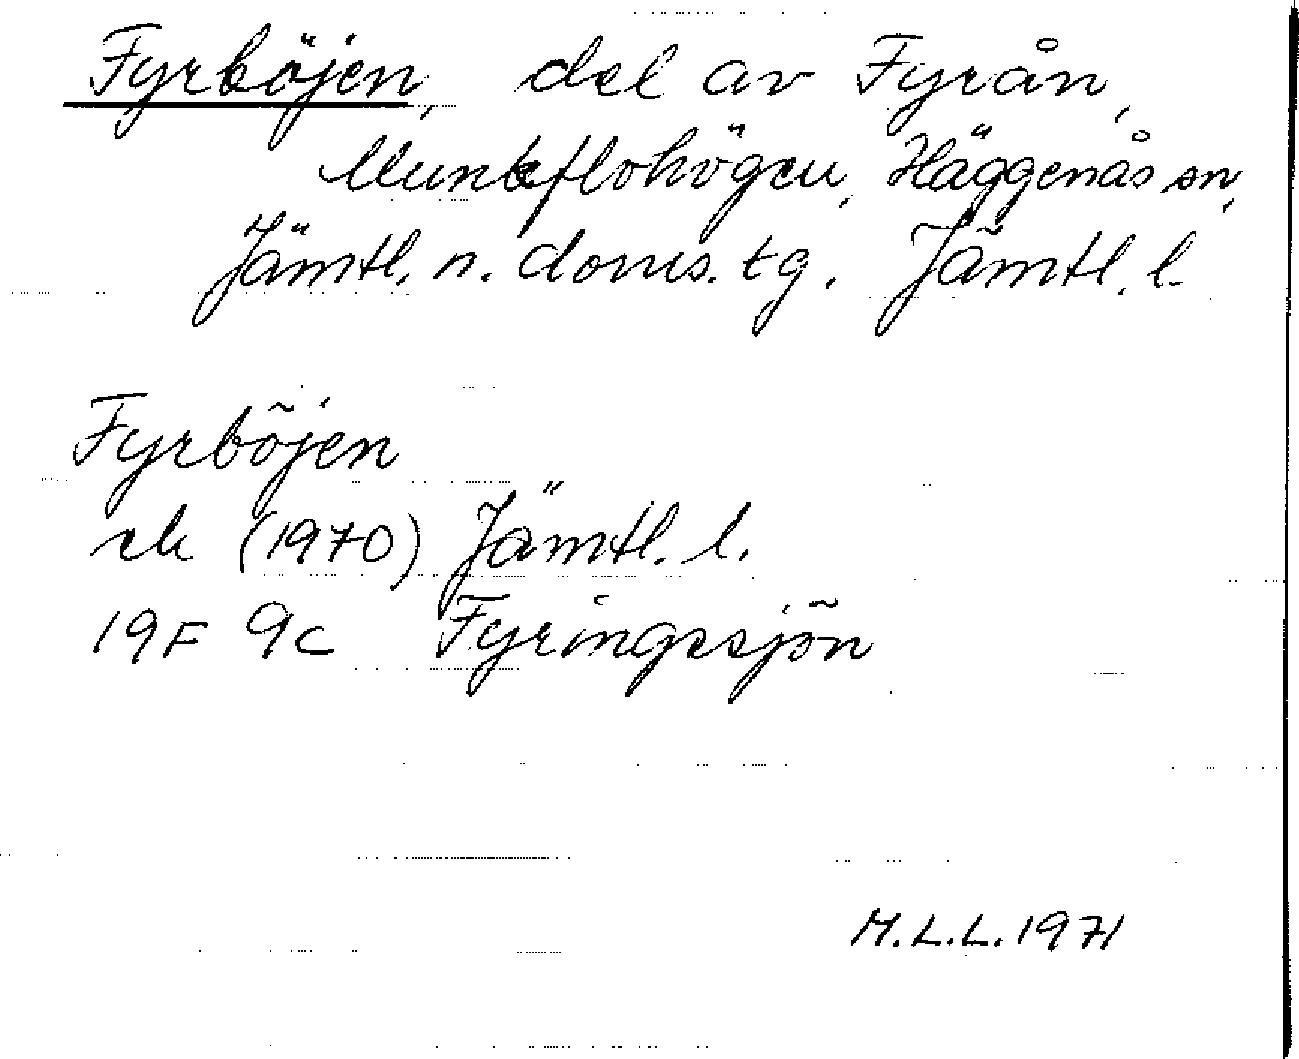 Fyrböjen, del av Fyrån,
Munkflohögen, Häggenås sn,
Jämtl. n. doms. tg. Jämtl. l.
Fyrböjen
ek (1970) Jämtl. l.
19F 9c Fyringssjön
M.L.L. 1971